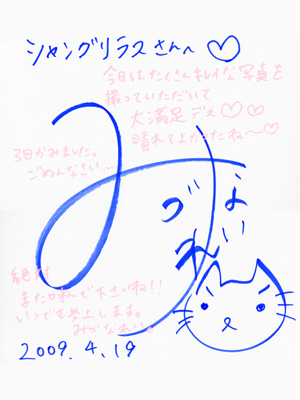 シャングリラスさんへ♡
今日はたくさんキレイな写真を
撮っていただいて
大満足デス♡♡
晴れてよかったね〜♡
3回かみました。
ごめんなさい...
み
づ
れ
よい
絶対
また呼んで下さいね!!
いつでも参上します。
2009.4.19